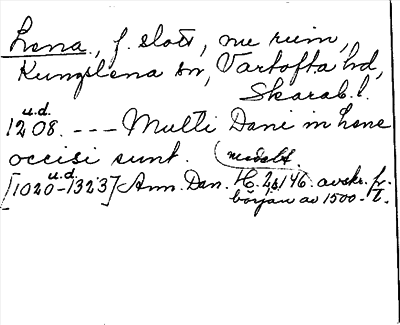 Lena, f. slott, nu ruin,
Kungslena sn, Vartofta hd,
Skarab. l.
u.d.
1208. --- Multi Dani in Lene
occisi sunt. (medelt.
u.d.
[1020-1323] Ann. Dan. 146. avskr. fr.
början av 1500-t.